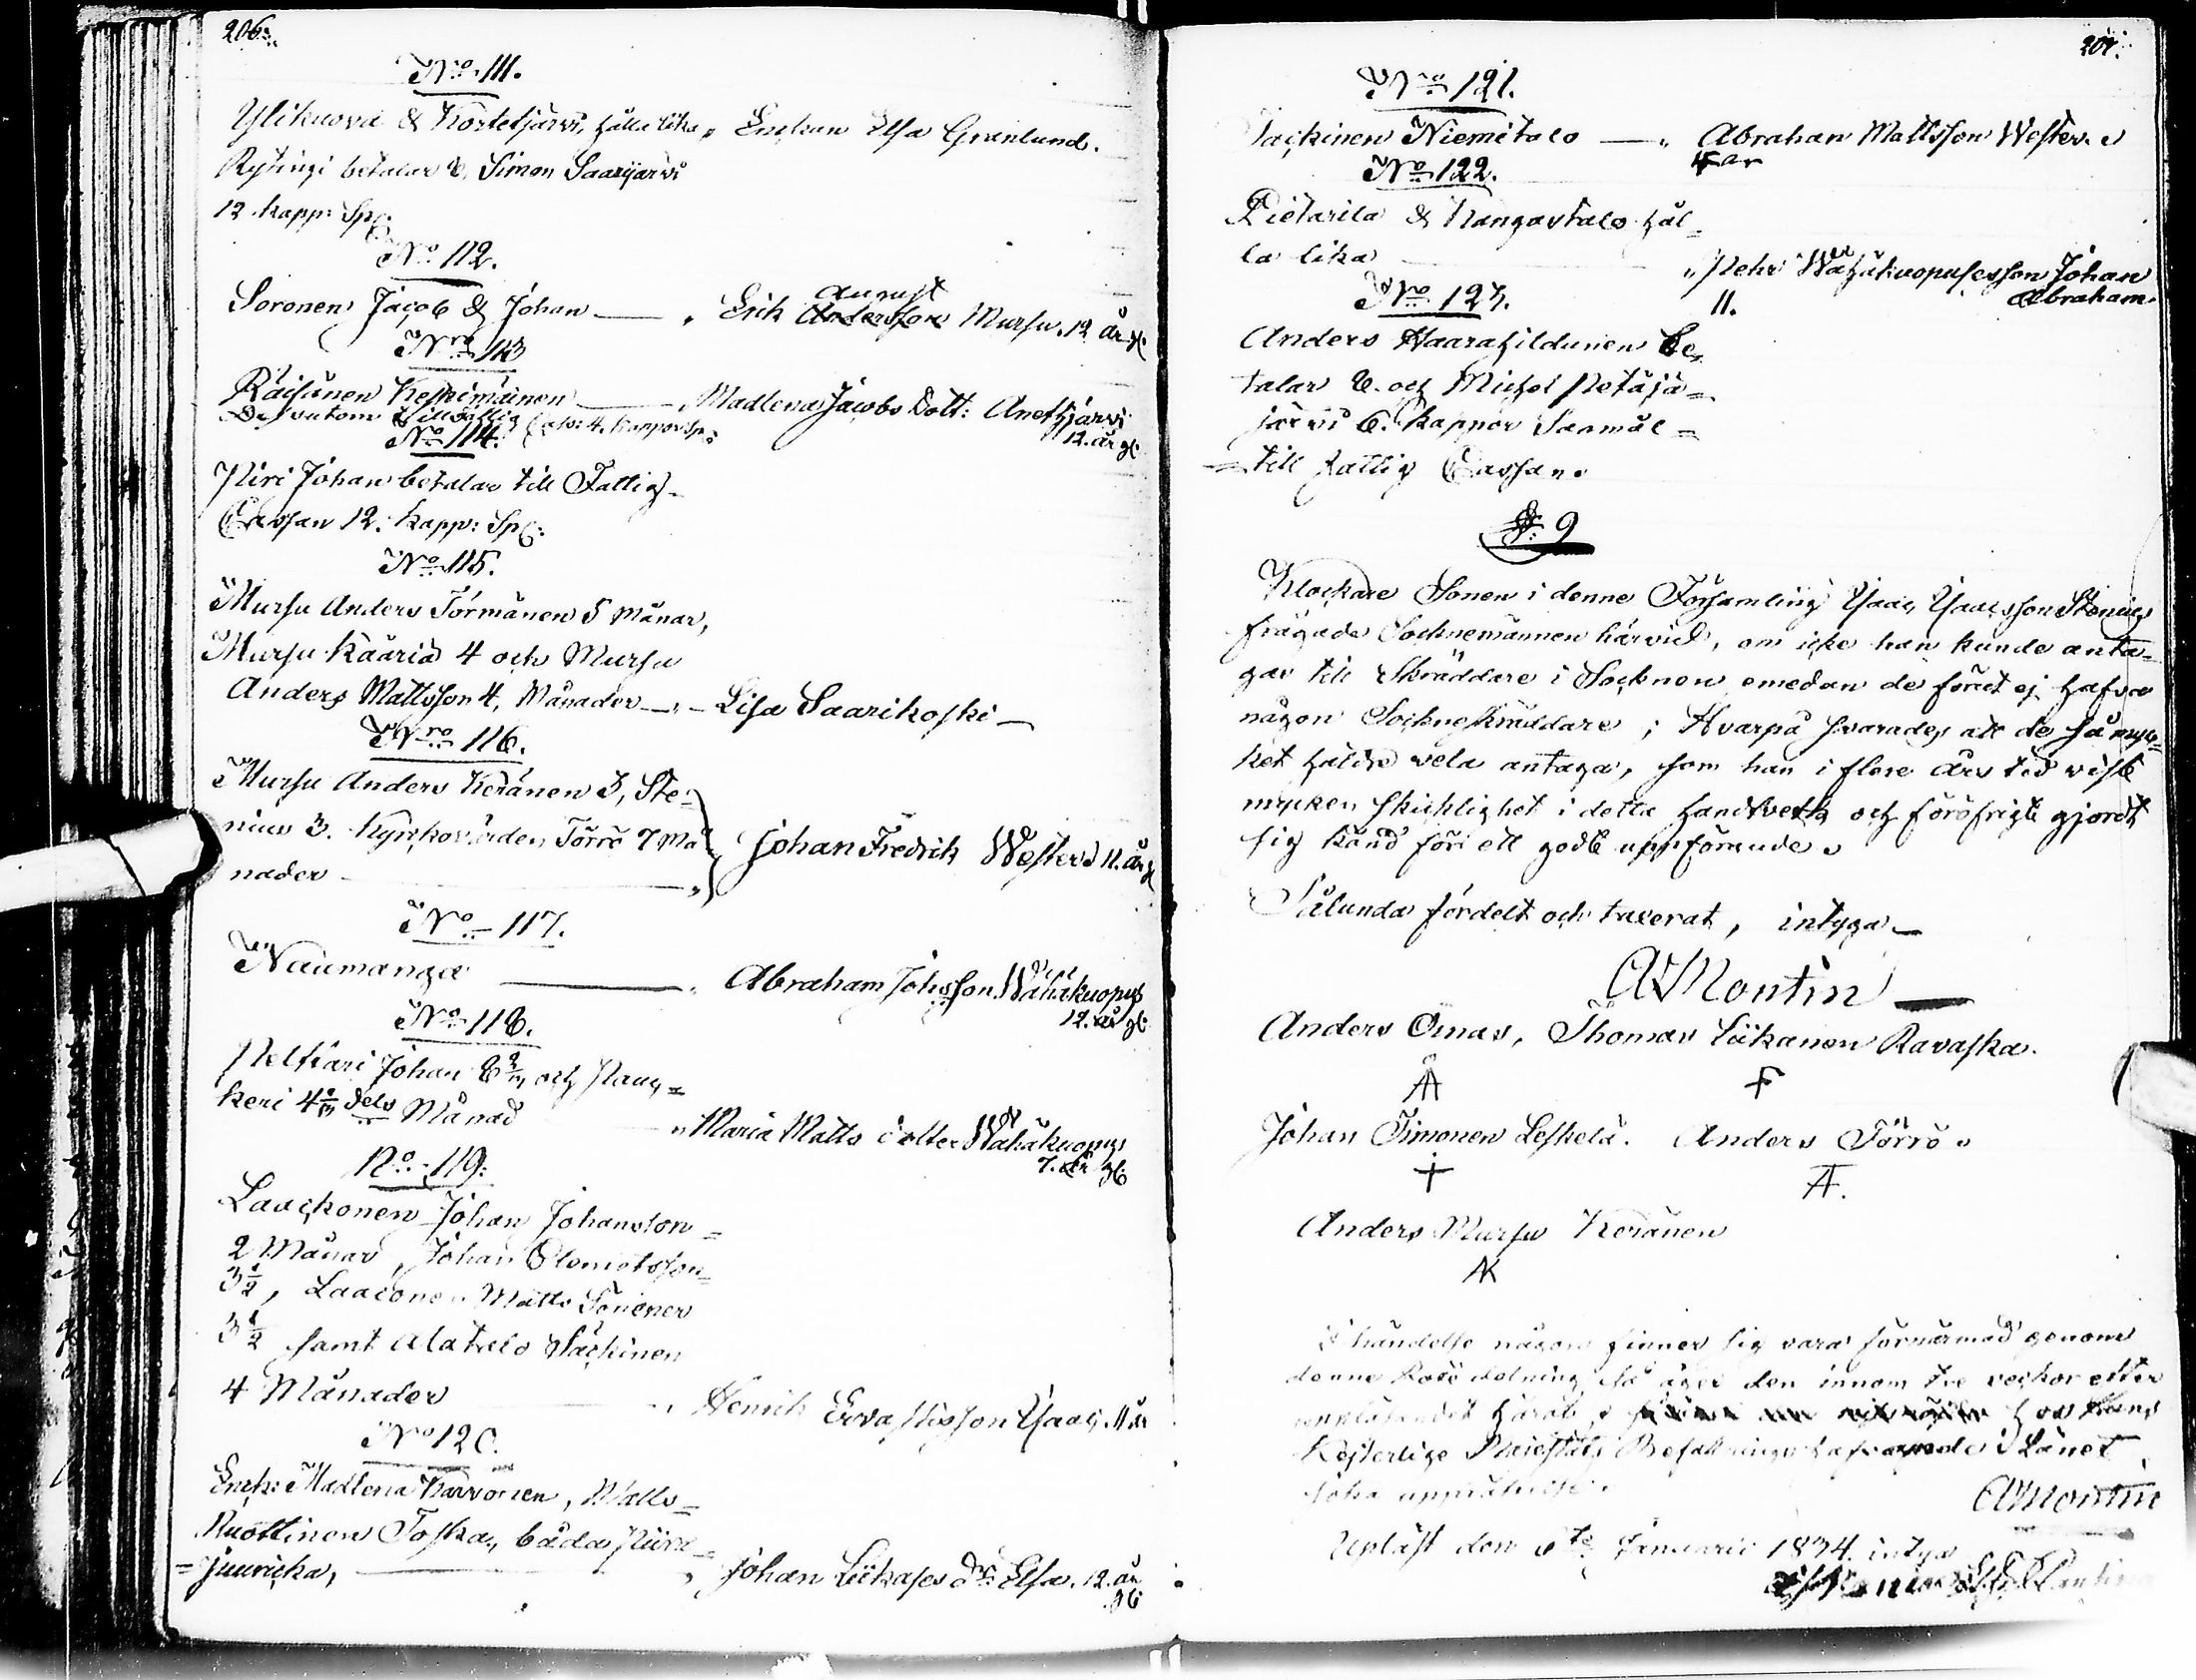 206.
No 111.
Ylikuova & Kostetjärvi, hålla lika „ Enkan Elsa Granlund.
Rytingi betalar 6, Simon Saarijärvi
12 kapp: Sp:
No 112.
Soronen Jacob & Johan — „ Erik August Mursu. 12 år gl:
Nro 113
Räisänen Keskimäinen — „ Madlena Jacobs Dott: Anetjärvi
Dessutom till Fattig Cass: 4. Kappor Sp: 12. år gl:
No 114.
Piri Johan betalar till Fattig-
Cassan 12. kapp: Sp:
No 115.
Mursu Anders Törmänen 5 Månar,
Mursu Kaaria 4 och Mursu
Anders Mattsson 4, Månader — „ — Lisa Saarikoski —
Nro 116.
Mursu Anders Keränen 3, Ste-
nius 3. Kyrkovärden Törrö 7 Må
nader — „ Johan Fredrik Wester 11. år gl
No 117.
Naumanga — „ Abraham Johsson Wähäkuopus
12. år gl:
No 118.
Pelttari Johan 8 2/3 och Pau=
keri 4 2/3 dels Månad „ Maria Matts dotter Wähäkuopus
7. år gl:
No 119:
Laackonen Johan Johansson =
2 Månar, Johan Clemetsson=
3 1/2, Laaconen Matts
3 1/2 samt Alatalo Säckinen
4 Månader „ Henrik Ervastisson Isaac, 11 år
No 120.
Enk: Madlena Karvonen, Matts=
Ruottinen Toska, båda
=Juuricka, — „ Johan Liikases Dr: Elsa. 12. år
gl:
207.
No 121.
Säckinen Niemitalo — „ Abraham Mattsson Wester.
No 122.
Pietarila & Kangastalo hål=
la lika „ Pehr Wähäkuopusesson Johan
Abraham.
11.
No 123.
Anders Haarahildunen be,
talar 6. och Michel Petäjä=
järvi 6. kappor Sanmål=
= till fattig Cassan.
§: 9
Klockare Sonen i denne Församling Isaac Isacsson Stenius
frågade Socknemännen härvid, om icke han kunde anta=
gas till Skräddare i Socknen emedan de förut ej hafva
någon Sockneskräddare; Hvarpå svarades att de så myc=
ket heldre vela antaga, som han i flere års tid vist
mycken skicklighet i detta handtverk och föröfrigt gjordt
sig känd för ett godt uppförande.
Sålunda fördelt och taxerat, intyga —
A Montin —
Anders Ömas, Thomas Liikanen Ravaska.
Johan Simonen Leskelä. Anders Törrö.
Anders Mursu Keränen
AK
I händelse någon finner sig vara förnärmad genom
denne Rotefördelning, så äger den innom tre veckor efter
hos Hans
Kejserlige Majestäts Befallningshafvande i Länet
söka upprättelse.
A Montin
Upläst den 6te Januarii 1834. intyga